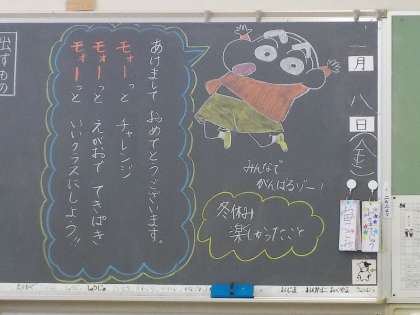 一月八日(金)
みんなで
がんばるゾー!
冬休み
楽しかったこと
あけまして おめでとうございます。
モォーっと チャレンジ
モォーっと えがおで てきぱき
モォーっと いいクラスにしよう!!
出すもの